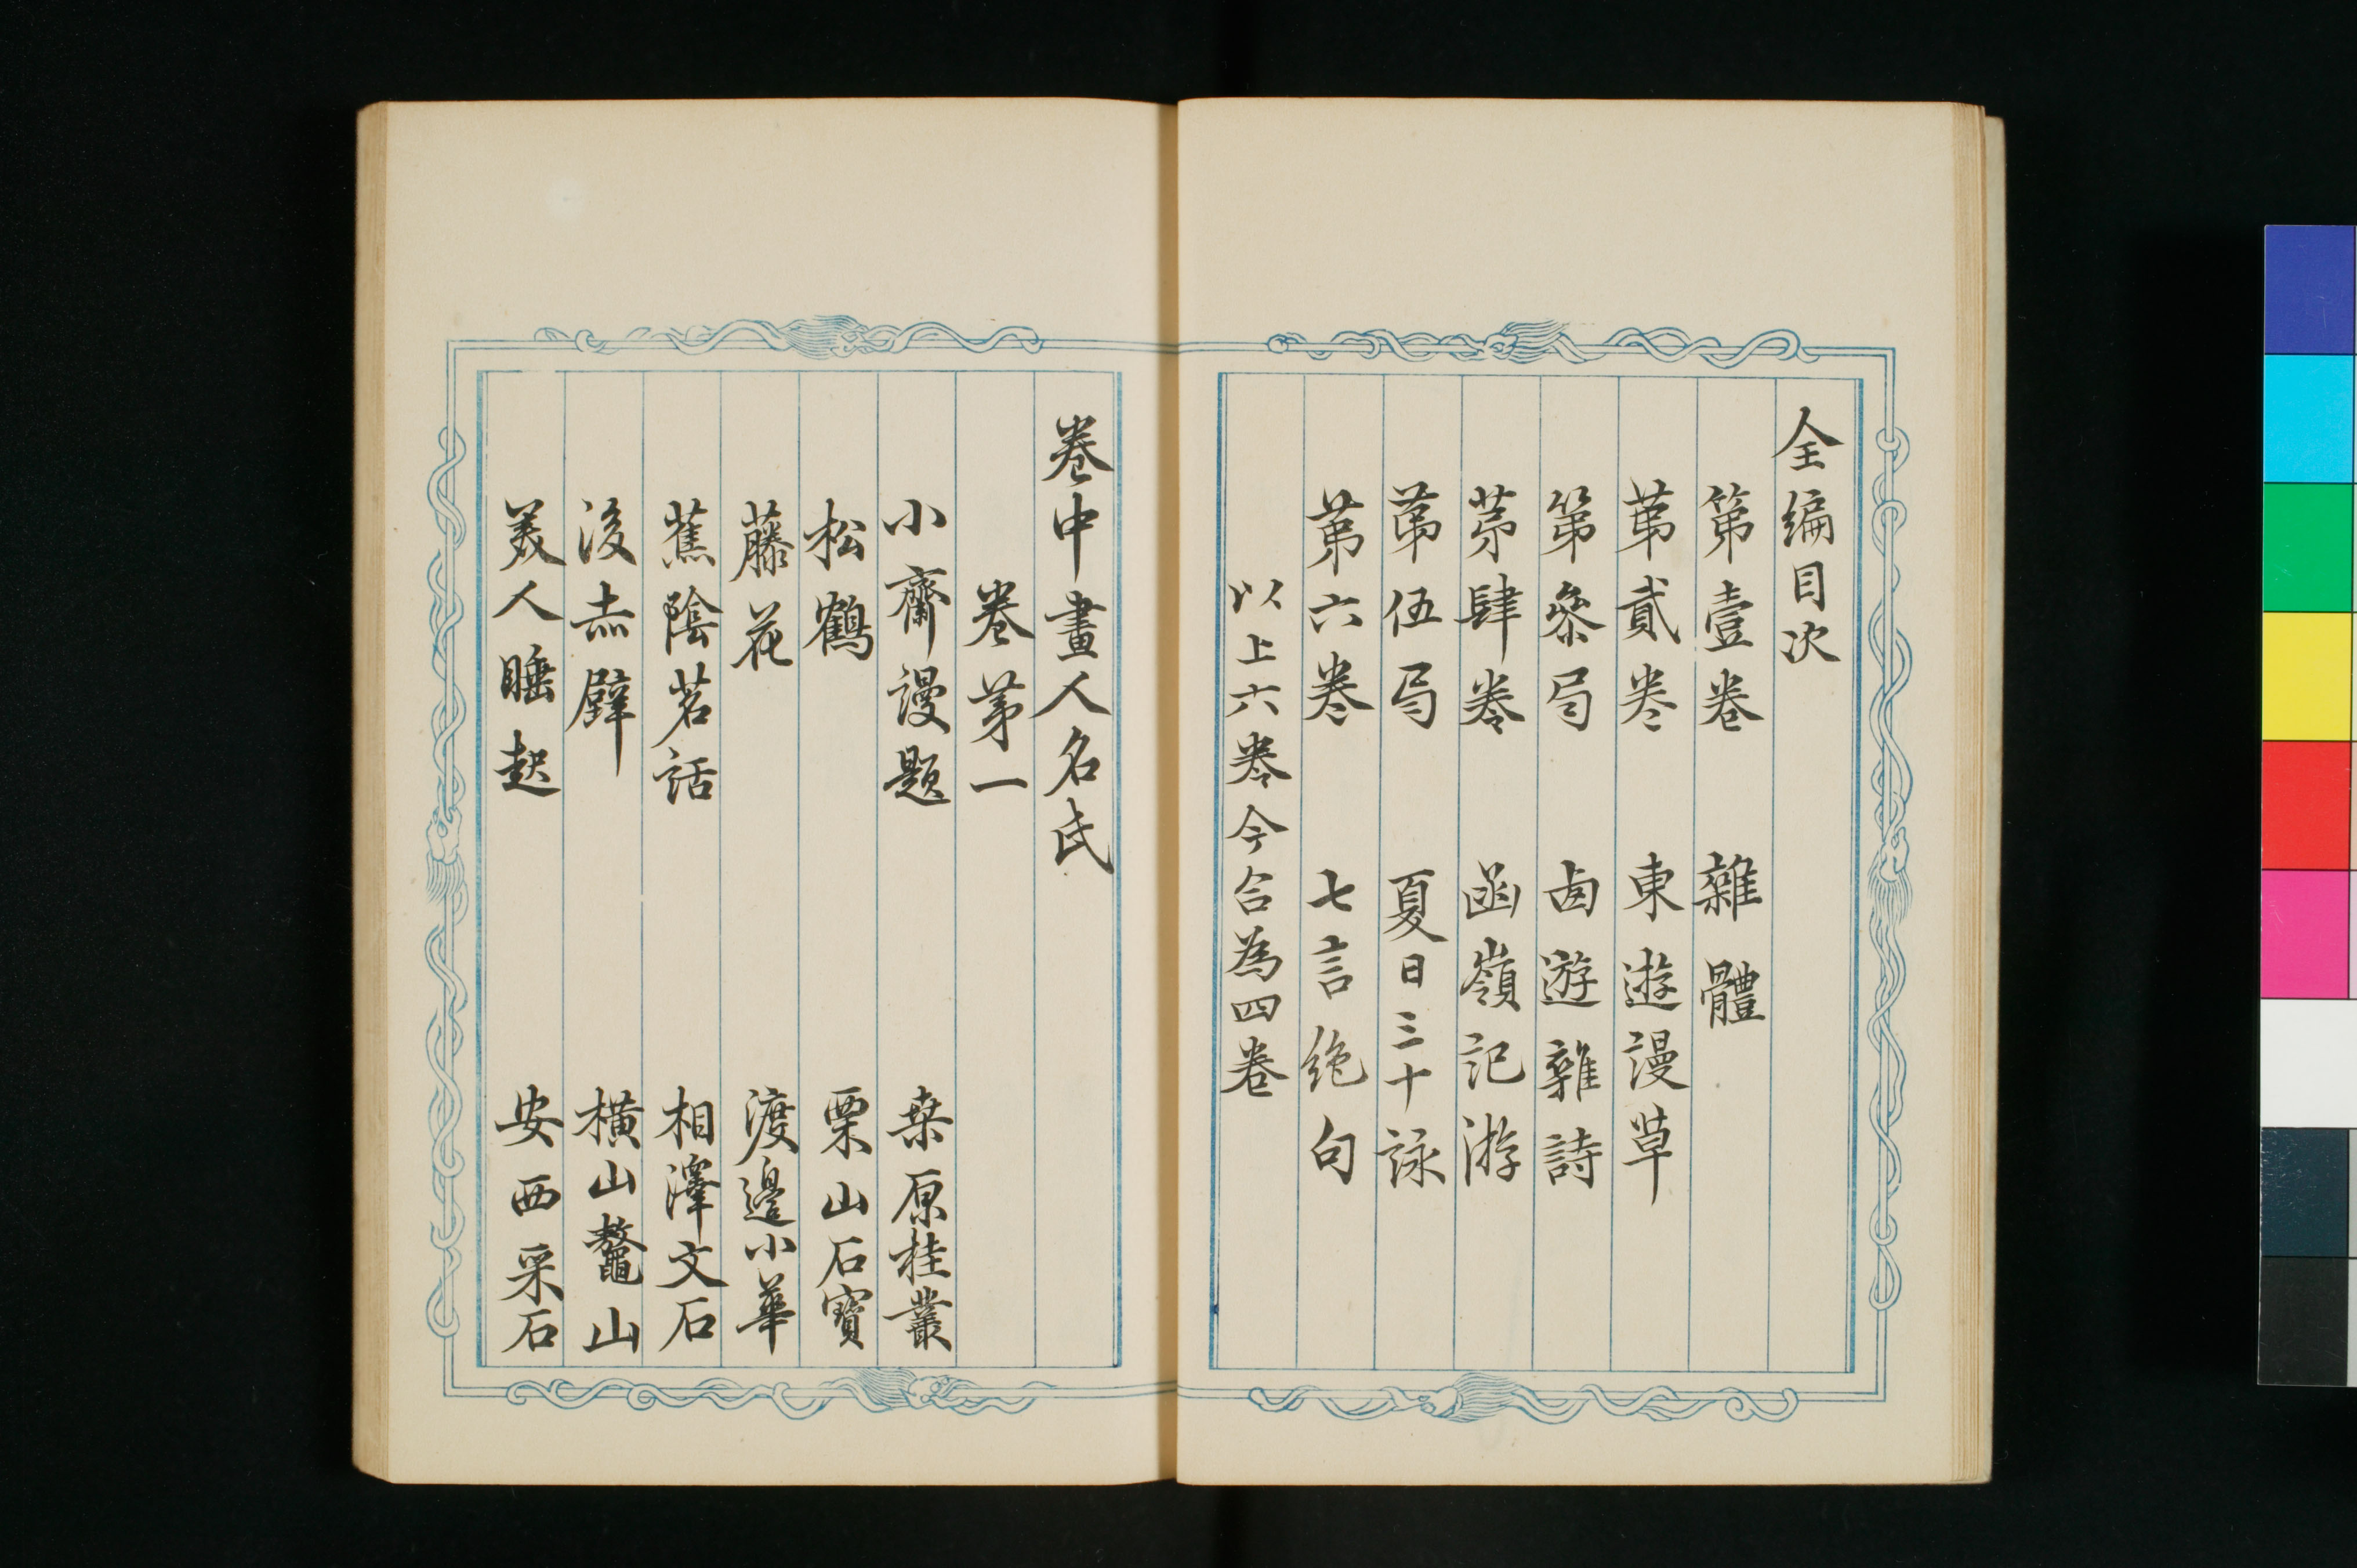 全編目次
第壹卷 雜體
第貳卷 東遊漫草
第叅局 卤遊雜詩
第肆卷 函嶺記游
第伍局 夏日三十詠
第六卷 七言絶句
以上六卷今合為四卷
卷中畫人名氏
卷第一
小齋謾題 桒原桂叢
松鶴 栗山石寶
藤花 渡邉小華
蕉陰茗話 相澤文石
後赤壁 横山鼇山
美人睡起 安西采石